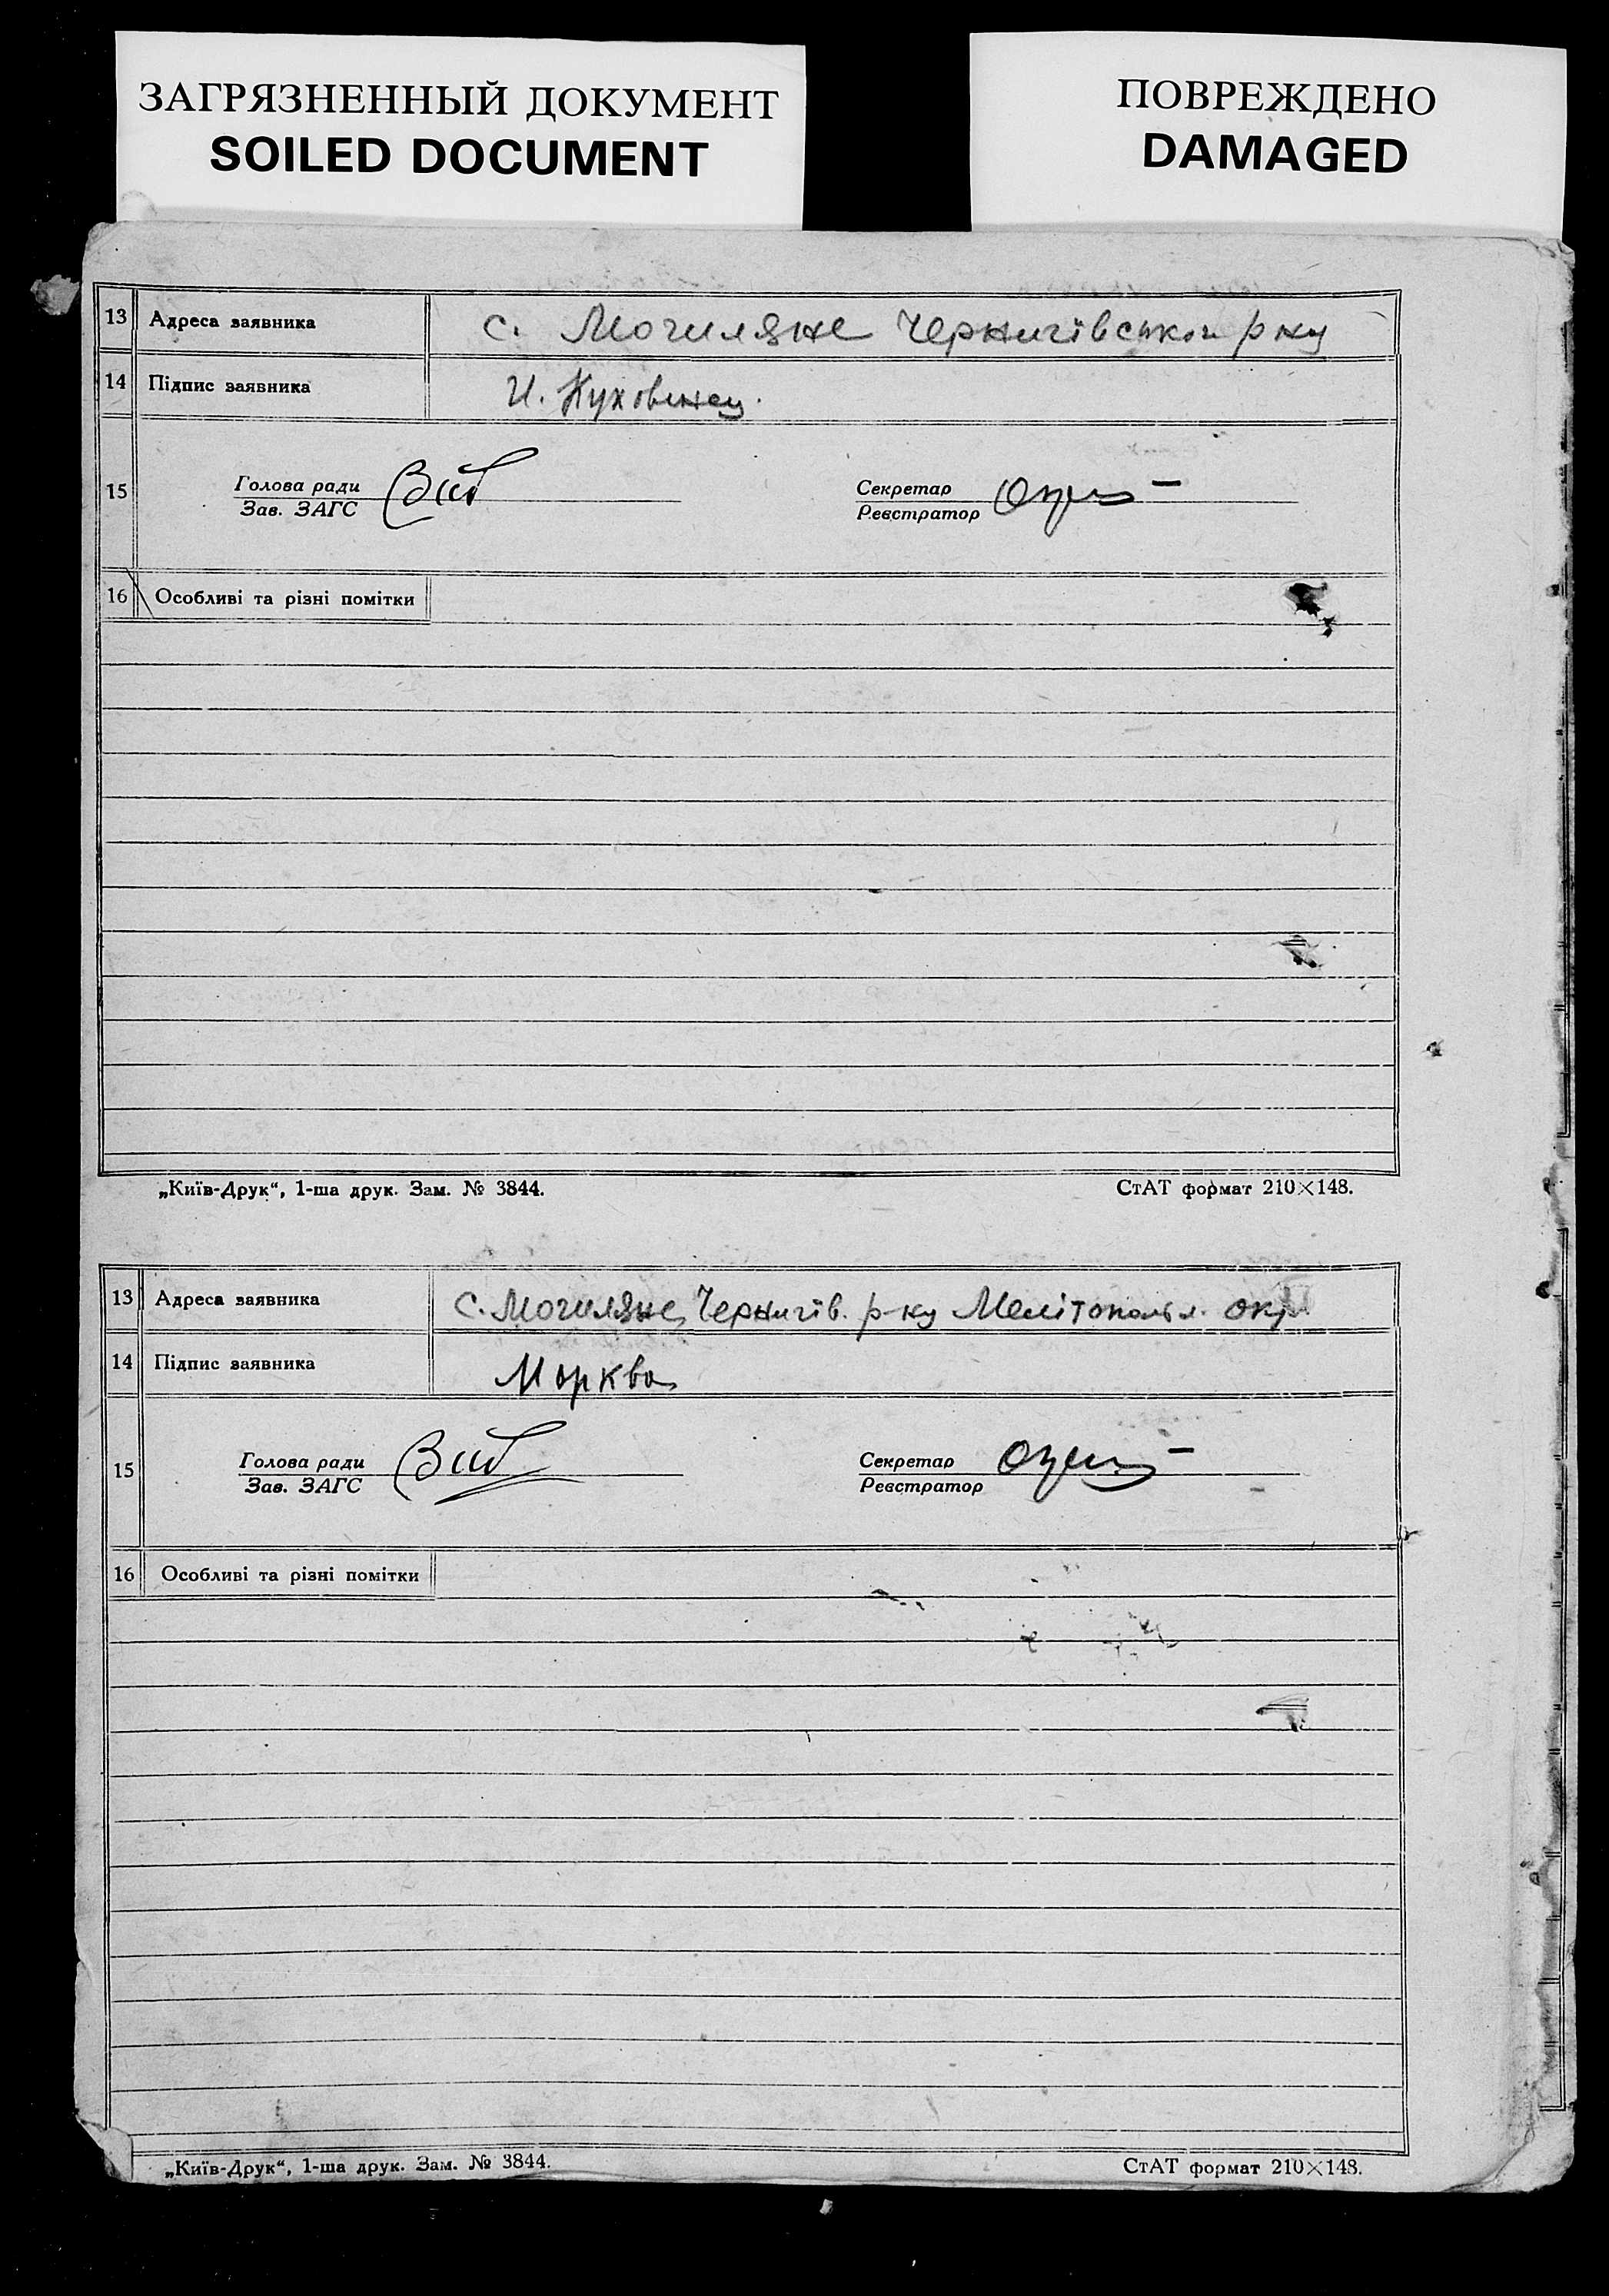 ЗАГРЯЗНЕННЫЙ ДОКУМЕНТ
SOILED DOCUMENT
ПОВРЕЖДЕНО
DAMAGED
13 Адреса заявника с. Могиляне Чернигівської р-ну
14 Підпис заявника И. Куховинец.
15 Голова ради
Зав. ЗАГС
Секретар
Реєстратор
16 Особливі та різні помітки
„Київ-Друк“, 1-ша друк. Зам. № 3844.
СтАТ формат 210×148.
13 Адреса заявника с. Могиляне, Чернигів. р-ну Мелітопольск. окр.
14 Підпис заявника Морква
15 Голова ради
Зав. ЗАГС
Секретар
Реєстратор
16 Особливі та різні помітки
„Київ-Друк“, 1-ша друк. Зам. № 3844.
СтАТ формат 210×148.